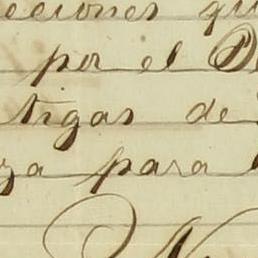 eciones qu
por el D
tigas de
ya para